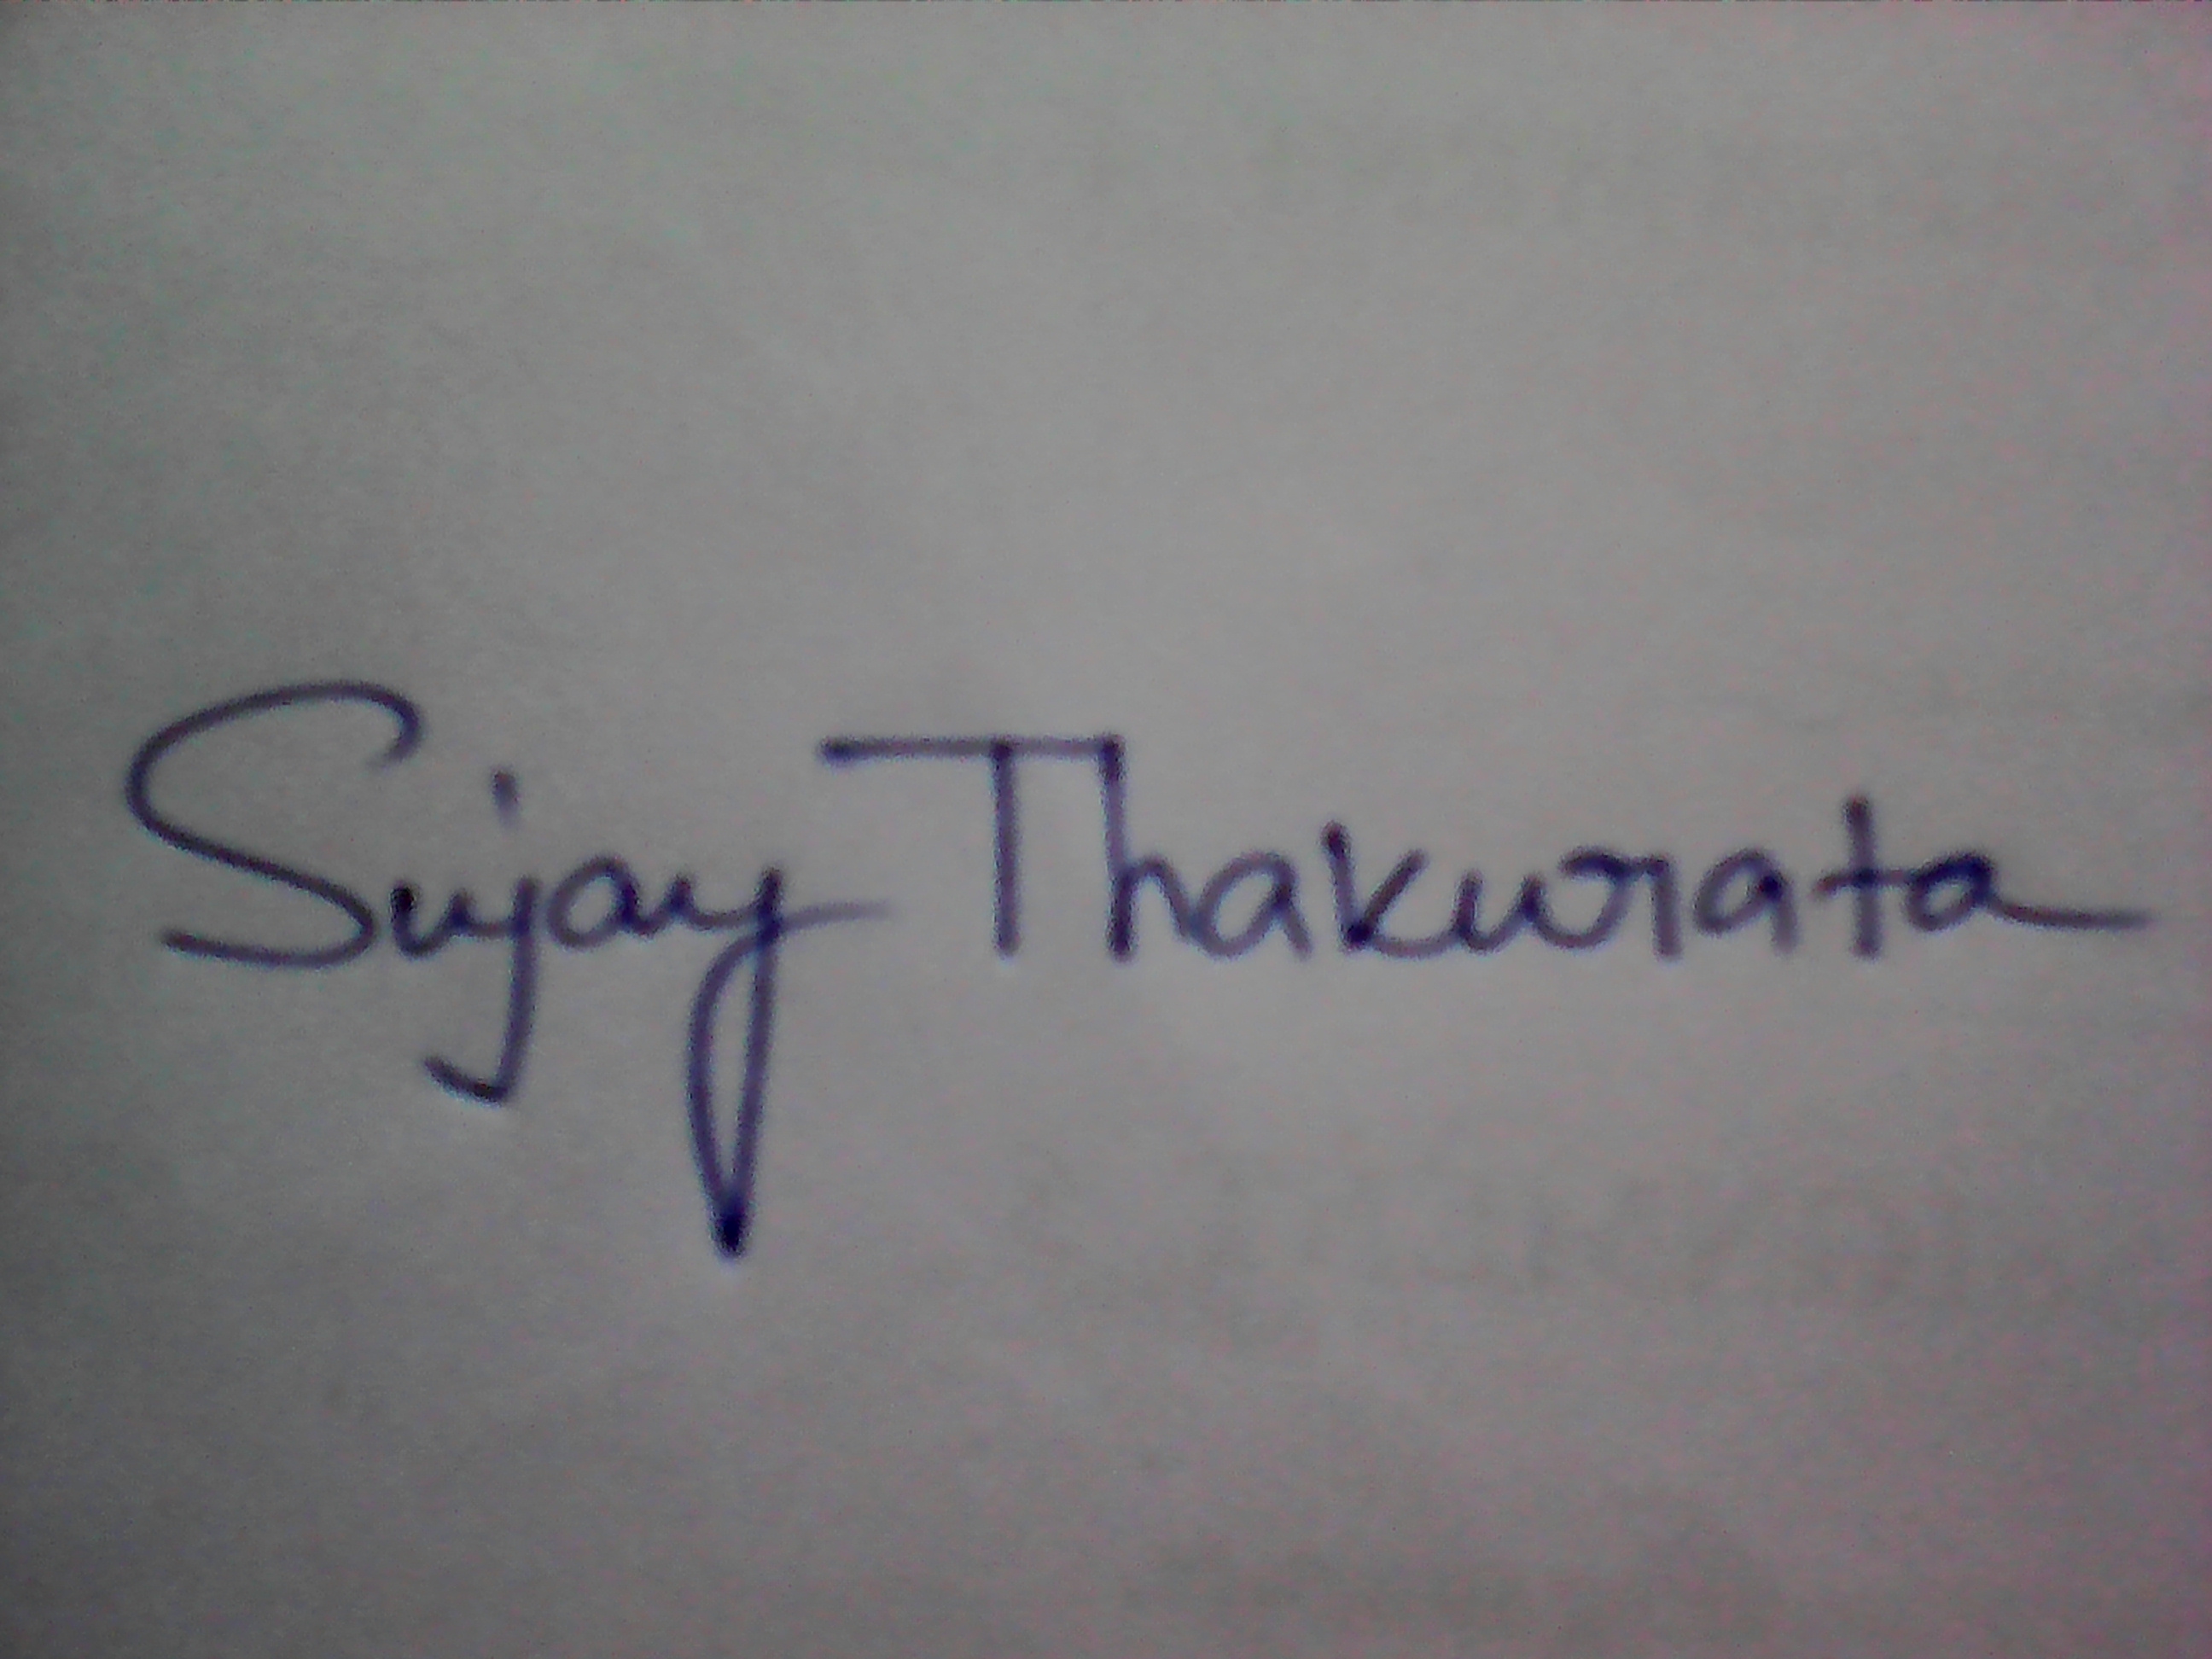 Sujay Thakurata